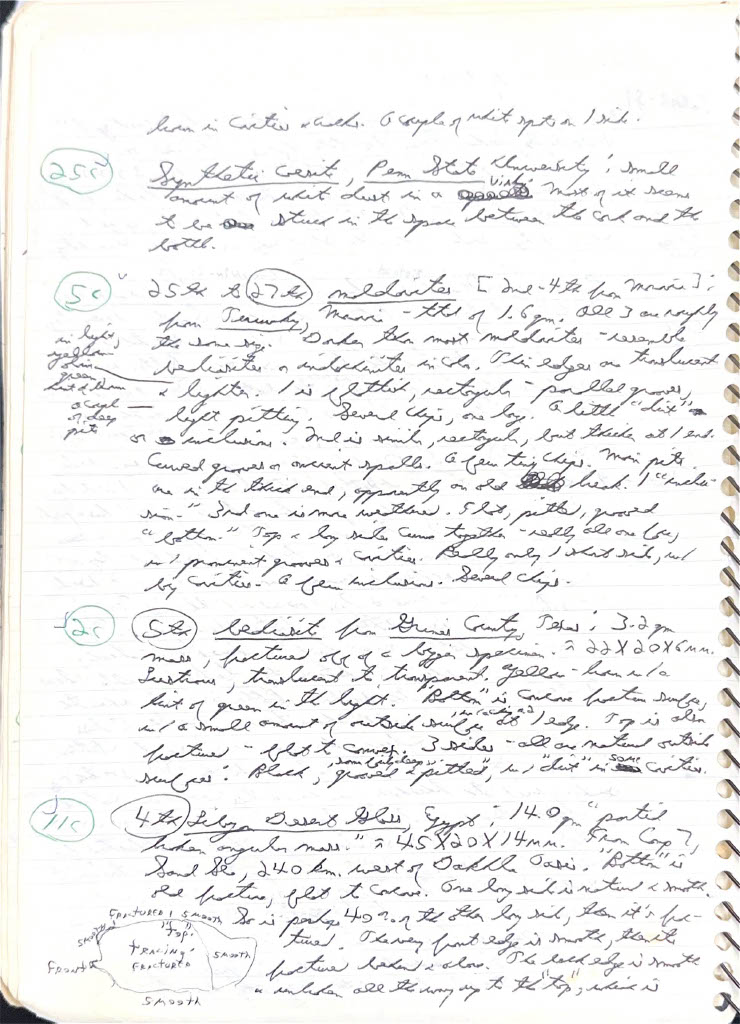 brown in cavities & cracks. A couple of white spots on 1 side.
25c Synthetic Coesite, Penn State University: small
amount of white dust in a vial. Most of it seems
to be stuck in the space between the cork and the
bottle.
5c 25th to 27th moldavites [2nd-4th from Moravia]:
from Moravia - total of 1.6 gm. All 3 are roughly
the same size. Darker than most moldavites - resemble
bediasites or indochinites in color. Thin edges are translucent
in light, yellow green
& lighter. 1 is flattish, rectangular - parallel grooves,
a couple of deep pits
light pitting. Several chips, one big. A little "dirt"
or inclusions. 2nd is similar, rectangular, but thicker at 1 end.
Curved grooves or ancient spalls. A few tiny chips. Main pits
are in the thick end, apparently on old break. 1 "inclu-
sion." 3rd one is more weathered. Flat, pitted, grooved
"bottom." Top & long sides curve together - really all one face,
w/ prominent grooves & cavities. Really only 1 short side, w/
big cavities. A few inclusions. Several chips.
2c 5th bediasite from Grimes County, Texas: 3.2 gm
mass, fractured off of a bigger specimen. ≈ 22X20X6mm.
Lustrous, translucent to transparent, yellow-brown w/ a
hint of green in the light. "Bottom" is concave fracture surface,
w/ a small amount of outside surface at 1 edge. Top is also
fracture - flat to convex. 3 sides - all are natural outside
surface: Black, grooved & pitted, w/ "dirt" in some cavities.
11c 4th Libyan Desert Glass, Egypt: 14.0 gm "partial
broken angular mass." ≈ 45X20X14mm. From Camp 7,
Sand Sea, 240 km. west of Dakhla Oasis. "Bottom" is
old fracture, flat to concave. One long side is natural & smooth.
So is perhaps 40% of the other long side, then it's frac-
tured. The very front edge is smooth, then it's
fracture behind & above. The back edge is smooth
& unbroken all the way up to the "top", which is
FRACTURED | SMOOTH
"TOP"
SMOOTH
TRACING:
FRACTURED
SMOOTH
FRONT
SMOOTH